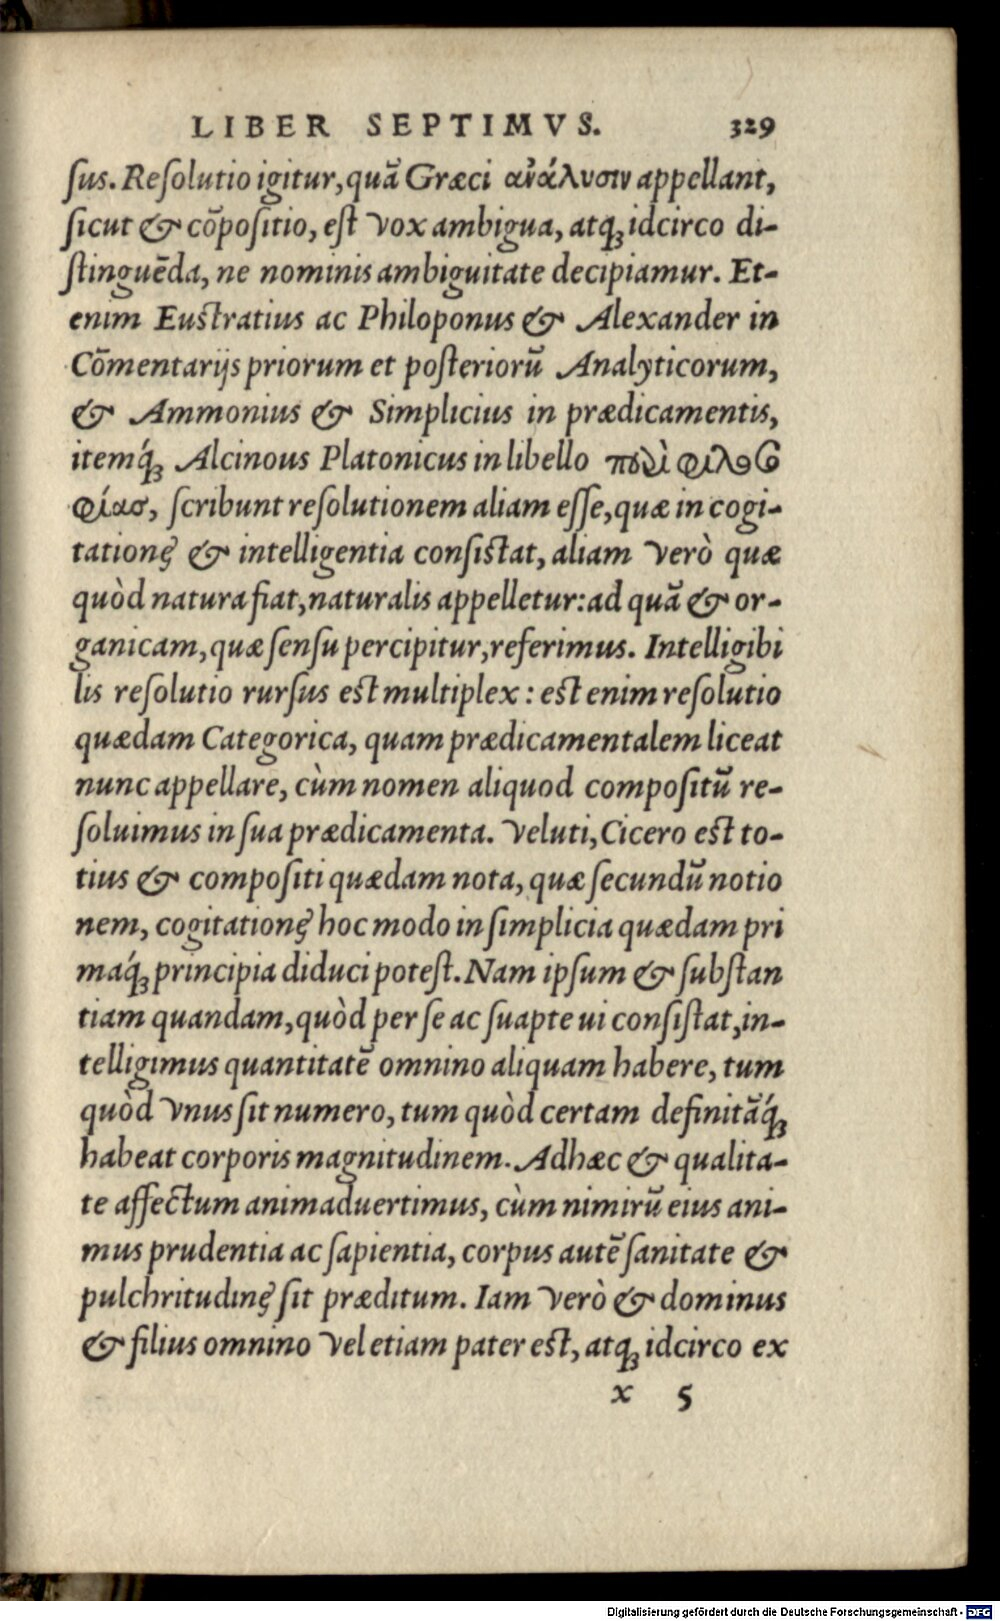 LIBER SEPTIMVS. 329
ſus. Reſolutio igitur, quā Græci ανάλυσιν appellant,
ſicut & cōpoſitio, eſt vox ambigua, atqꝫ idcirco di-
ſtinguēda, ne nominis ambiguitate decipiamur. Et-
enim Euſtratius ac Philoponus & Alexander in
Cōmentarijs priorum et poſteriorū Analyticorum,
& Ammonius & Simplicius in prædicamentis,
itemq́ꝫ Alcinous Platonicus in libello περὶ φιλοσο
φίας, ſcribunt reſolutionem aliam eſſe, quæ in cogi-
tationę & intelligentia conſiſtat, aliam verò quæ
quòd natura fiat, naturalis appelletur: ad quā & or-
ganicam, quæ ſenſu percipitur, referimus. Intelligibi
lis reſolutio rurſus eſt multiplex: eſt enim reſolutio
quædam Categorica, quam prædicamentalem liceat
nunc appellare, cùm nomen aliquod compoſitū re-
ſoluimus in ſua prædicamenta. Veluti, Cicero eſt to-
tius & compoſiti quædam nota, quæ ſecundū notio
nem, cogitationę hoc modo in ſimplicia quædam pri
maq́ꝫ principia diduci poteſt. Nam ipſum & ſubſtan
tiam quandam, quòd per ſe ac ſuapte ui conſiſtat, in-
telligimus quantitatē omnino aliquam habere, tum
quòd vnus ſit numero, tum quòd certam definitāq́ꝫ
habeat corporis magnitudinem. Adhæc & qualita-
te affectum animaduertimus, cùm nimirū eius ani-
mus prudentia ac ſapientia, corpus autē ſanitate &
pulchritudinę ſit præditum. Iam verò & dominus
& filius omnino vel etiam pater eſt, atqꝫ idcirco ex
x 5
Digitalisierung gefördert durch die Deutsche Forschungsgemeinschaft - DFG